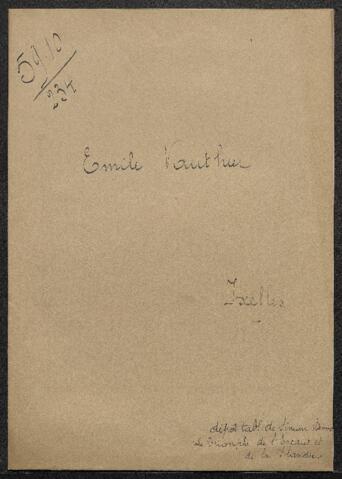 5910
234
Emile Vauthier
Ixelles
dépôt tabl. de Simon
Le Triomphe de l'Escaut et
de la Flandre